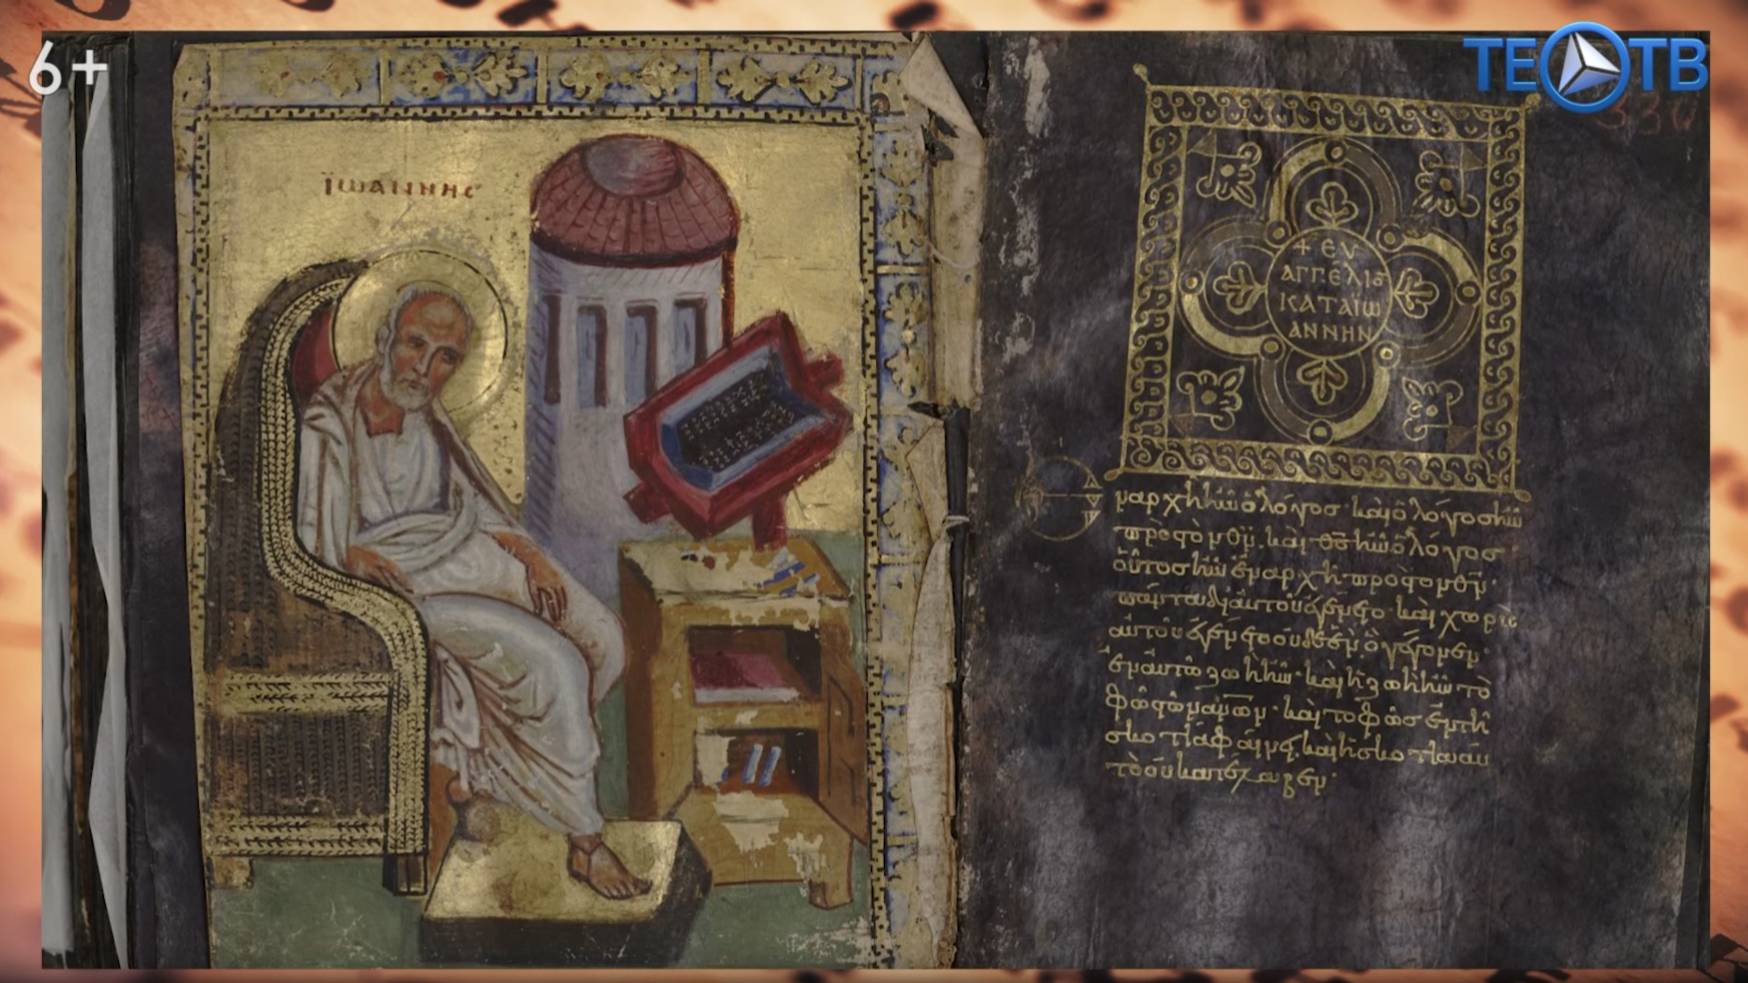 6+
ТЕОТВ
ΪΩΑΝΝΗϹ
330
+ ΕΥ
ΑΓΓΈΛΙΟ
ΚΑΤΑΪΩ
ΑΝΝΗΝ
ἐν ἀρχῆ ἦν ὁ λόγοσ· καὶ ὁ λόγοσ ἦν
πρὸσ τὸν θν̄· καὶ θσ̄ ἦν ὁ λόγοσ·
οὗτοσ ἦν ἐν ἀρχῆ προσ τον θν̄·
πάντα δι αυτοῦ ἐγένετο· καὶ χωρὶσ
αυτοῦ ἐγένετο οὐδὲ ἐν ὃ γέγονεν·
ἐν αυτῶ ζωὴ ἦν· καὶ ἡ ζωὴ ἦν τὸ
φῶσ τῶν ἀν̄ων· καὶ το φῶσ ἐν τῆ
σκοτία φαίνει, καὶ ἡ σκοτία αυ
τὸ οὐ κατέλαβεν·